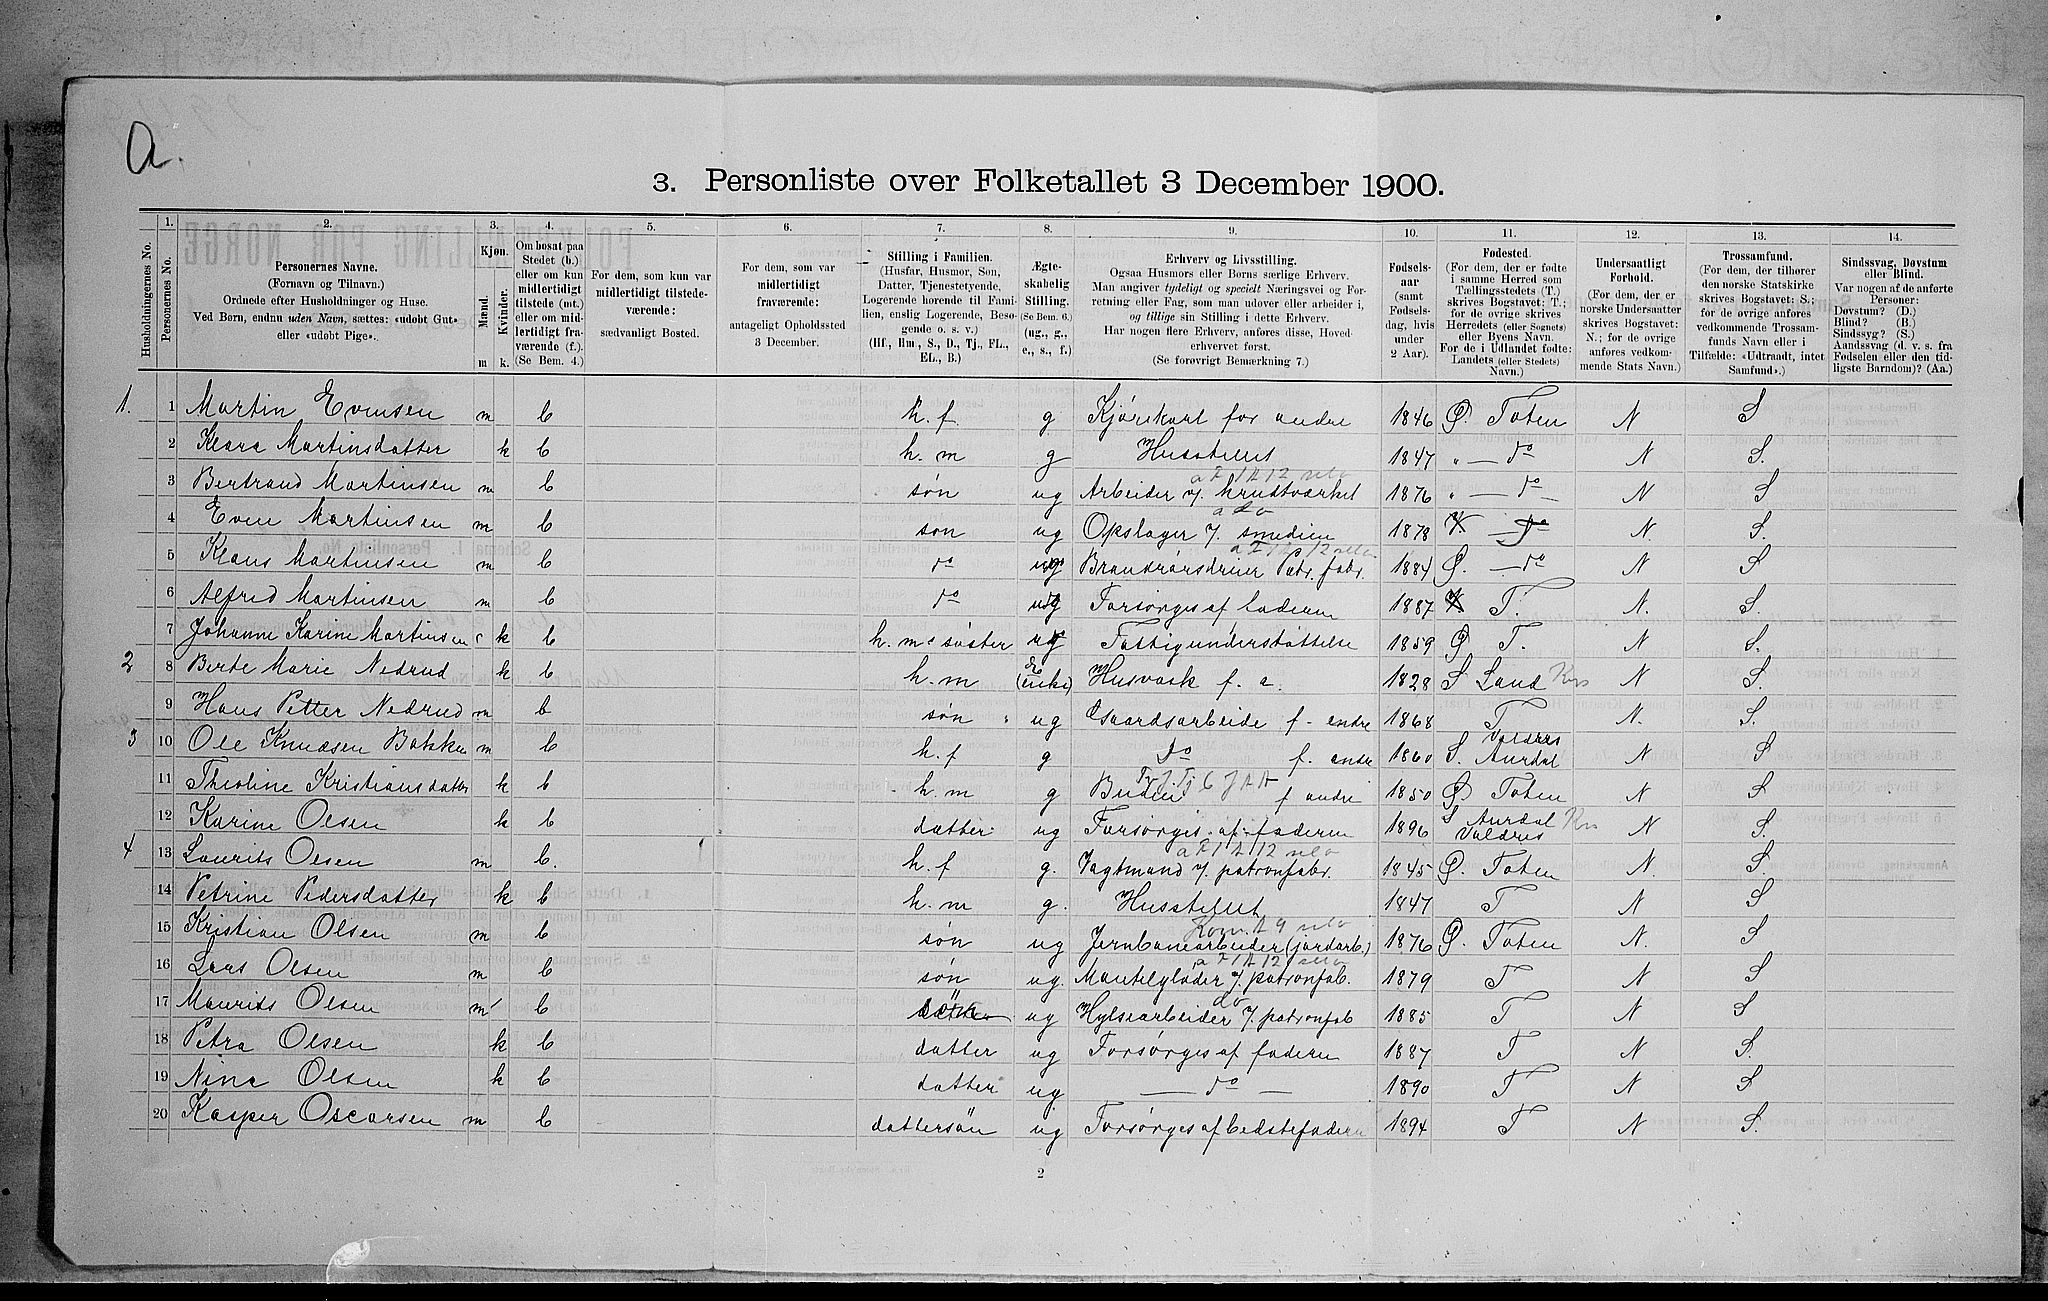 a.
3. Personliste over Folketallet 3 December 1900.
Husholdningernes No.
1.
Personernes No.
2.
Personernes Navne.
(Fornavn og Tilnavn.)
Ordnede efter Husholdninger og Huse.
Ved Børn, endnu uden Navn, sættes: «udøbt Gut»
eller «udøbt Pige».
3.
Kjøn.
Mænd.
Kvinder.
m k.
4.
Om bosat paa
Stedet (b.)
eller om kun
midlertidigt
tilstede (mt.)
eller om mid-
lertidigt fra-
værende (f.).
(Se Bem. 4.)
5.
For dem, som kun var
midlertidigt tilstede-
værende:
sædvanligt Bosted.
6.
For dem, som var
midlertidigt
fraværende:
antageligt Opholdssted
3 December.
7.
Stilling i Familien.
(Husfar, Husmor, Søn,
Datter, Tjenestetyende,
Logerende hørende til Fami-
lien, enslig Logerende, Besø-
gende o. s. v.)
(Hf, Hm, S., D., Tj., FL.,
EL., B.)
8.
Ægte-
skabelig
Stilling.
(Se Bem. 6.)
(ug., g.,
e., s., f.)
9.
Erhverv og Livsstilling.
Ogsaa Husmors eller Børns særlige Erhverv.
Man angiver tydeligt og specielt Næringsvei og For-
retning eller Fag, som man udøver eller arbeider i,
og tillige sin Stilling i dette Erhverv.
Har nogen flere Erhverv, anføres disse, Hoved-
erhvervet først.
(Se forøvrigt Bemærkning 7.)
10.
Fødsels-
aar
(samt
Fødsels-
dag, hvis
under
2 Aar).
11.
Fødested.
(For dem, der er fødte
i samme Herred som
Tællingsstedets (T.)
skrives Bogstavet: T.;
for de øvrige skrives
Herredets (eller Sognets)
eller Byens Navn.
For de i Udlandet fødte:
Landets (eller Stedets)
Navn.)
12.
Undersaatligt
Forhold.
(For dem, der er
norske Undersaatter
skrives Bogstavet:
N.; for de øvrige
anføres vedkom-
mende Stats Navn.)
13.
Trossamfund.
(For dem, der tilhører
den norske Statskirke
skrives Bogstavet: S.;
for de øvrige anføres
vedkommende Trossam-
funds Navn eller i
Tilfælde: «Udtraadt, intet
Samfund».)
14.
Sindssvag, Døvstum
eller Blind.
Var nogen af de anførte
Personer:
Døvstum? (D.)
Blind? (B.)
Sindssyg? (S.)
Aandssvag (d. v. s. fra
Fødselen eller den tid-
ligste Barndom)? (Aa.)
1. 1 Martin Evensen m b h.f g Kjørekarl for andre 1846 Ø. Toten N S
2 Klara Martinsdatter k b h.m g Husstellet 1847 " — do N S.
3 Bertrand Martinsen m b søn ug Arbeider v. krudtværket 1876 " — do N S
4 Even Martinsen m b son ug Opslager v. smedien 1878 V. — do N. S.
5 Klaus Martinsen m b do ug Brandrørsdreier Patr. fabr. 1884 Ø. — do N S
6 Alfred Martinsen m b do ug Forsørges af faderen 1887 T. N. S.
7 Johanne Karine Martinsen k b h. ms søster ug Fattigunderstøttelse 1859 Ø T. N S.
2 8 Berte Marie Nedrud k b h.m e (enke) Husvask f. a. 1828 S Land N S.
9 Hans Petter Nedrud m b søn ug Gaardsarbeide f. andre 1868 T N. S.
3 10 Ole Knudsen Bakken m b h.f g do f. andre 1860 Valdres S. Aurdal N S
11 Theoline Kristiansdatter k b h.m g f andre 1850 Ø Toten N S
12 Karine Olsen k b datter ug Forsørges af faderen 1896 S Aurdal Valdres N S.
4 13 Laurits Olsen m b. h.f g. Vagtmand v. patronfabr. 1845 Ø. Toten N. S.
14 Petrine Pedersdatter k b h.m g. Husstellet 1847 T N S
15 Kristian Olsen m b søn ug Jernbanearbeider (jordarb.) 1876 Ø. Toten N. S
16 Lars Olsen m b søn ug. Mantelgløder v. patronfab. 1879 T N S
17 Maurits Olsen m b søn ug Hylsearbeider v. patronfab 1885 T N S
18 Petra Olsen k b datter ug Forsørges af faderen 1887 T N S.
19 Nina Olsen k b datter ug — do — 1890 T N S
20 Kasper Oscarsen m b dattersøn ug Forsørges af bedstefaderen 1894 T N S.
2